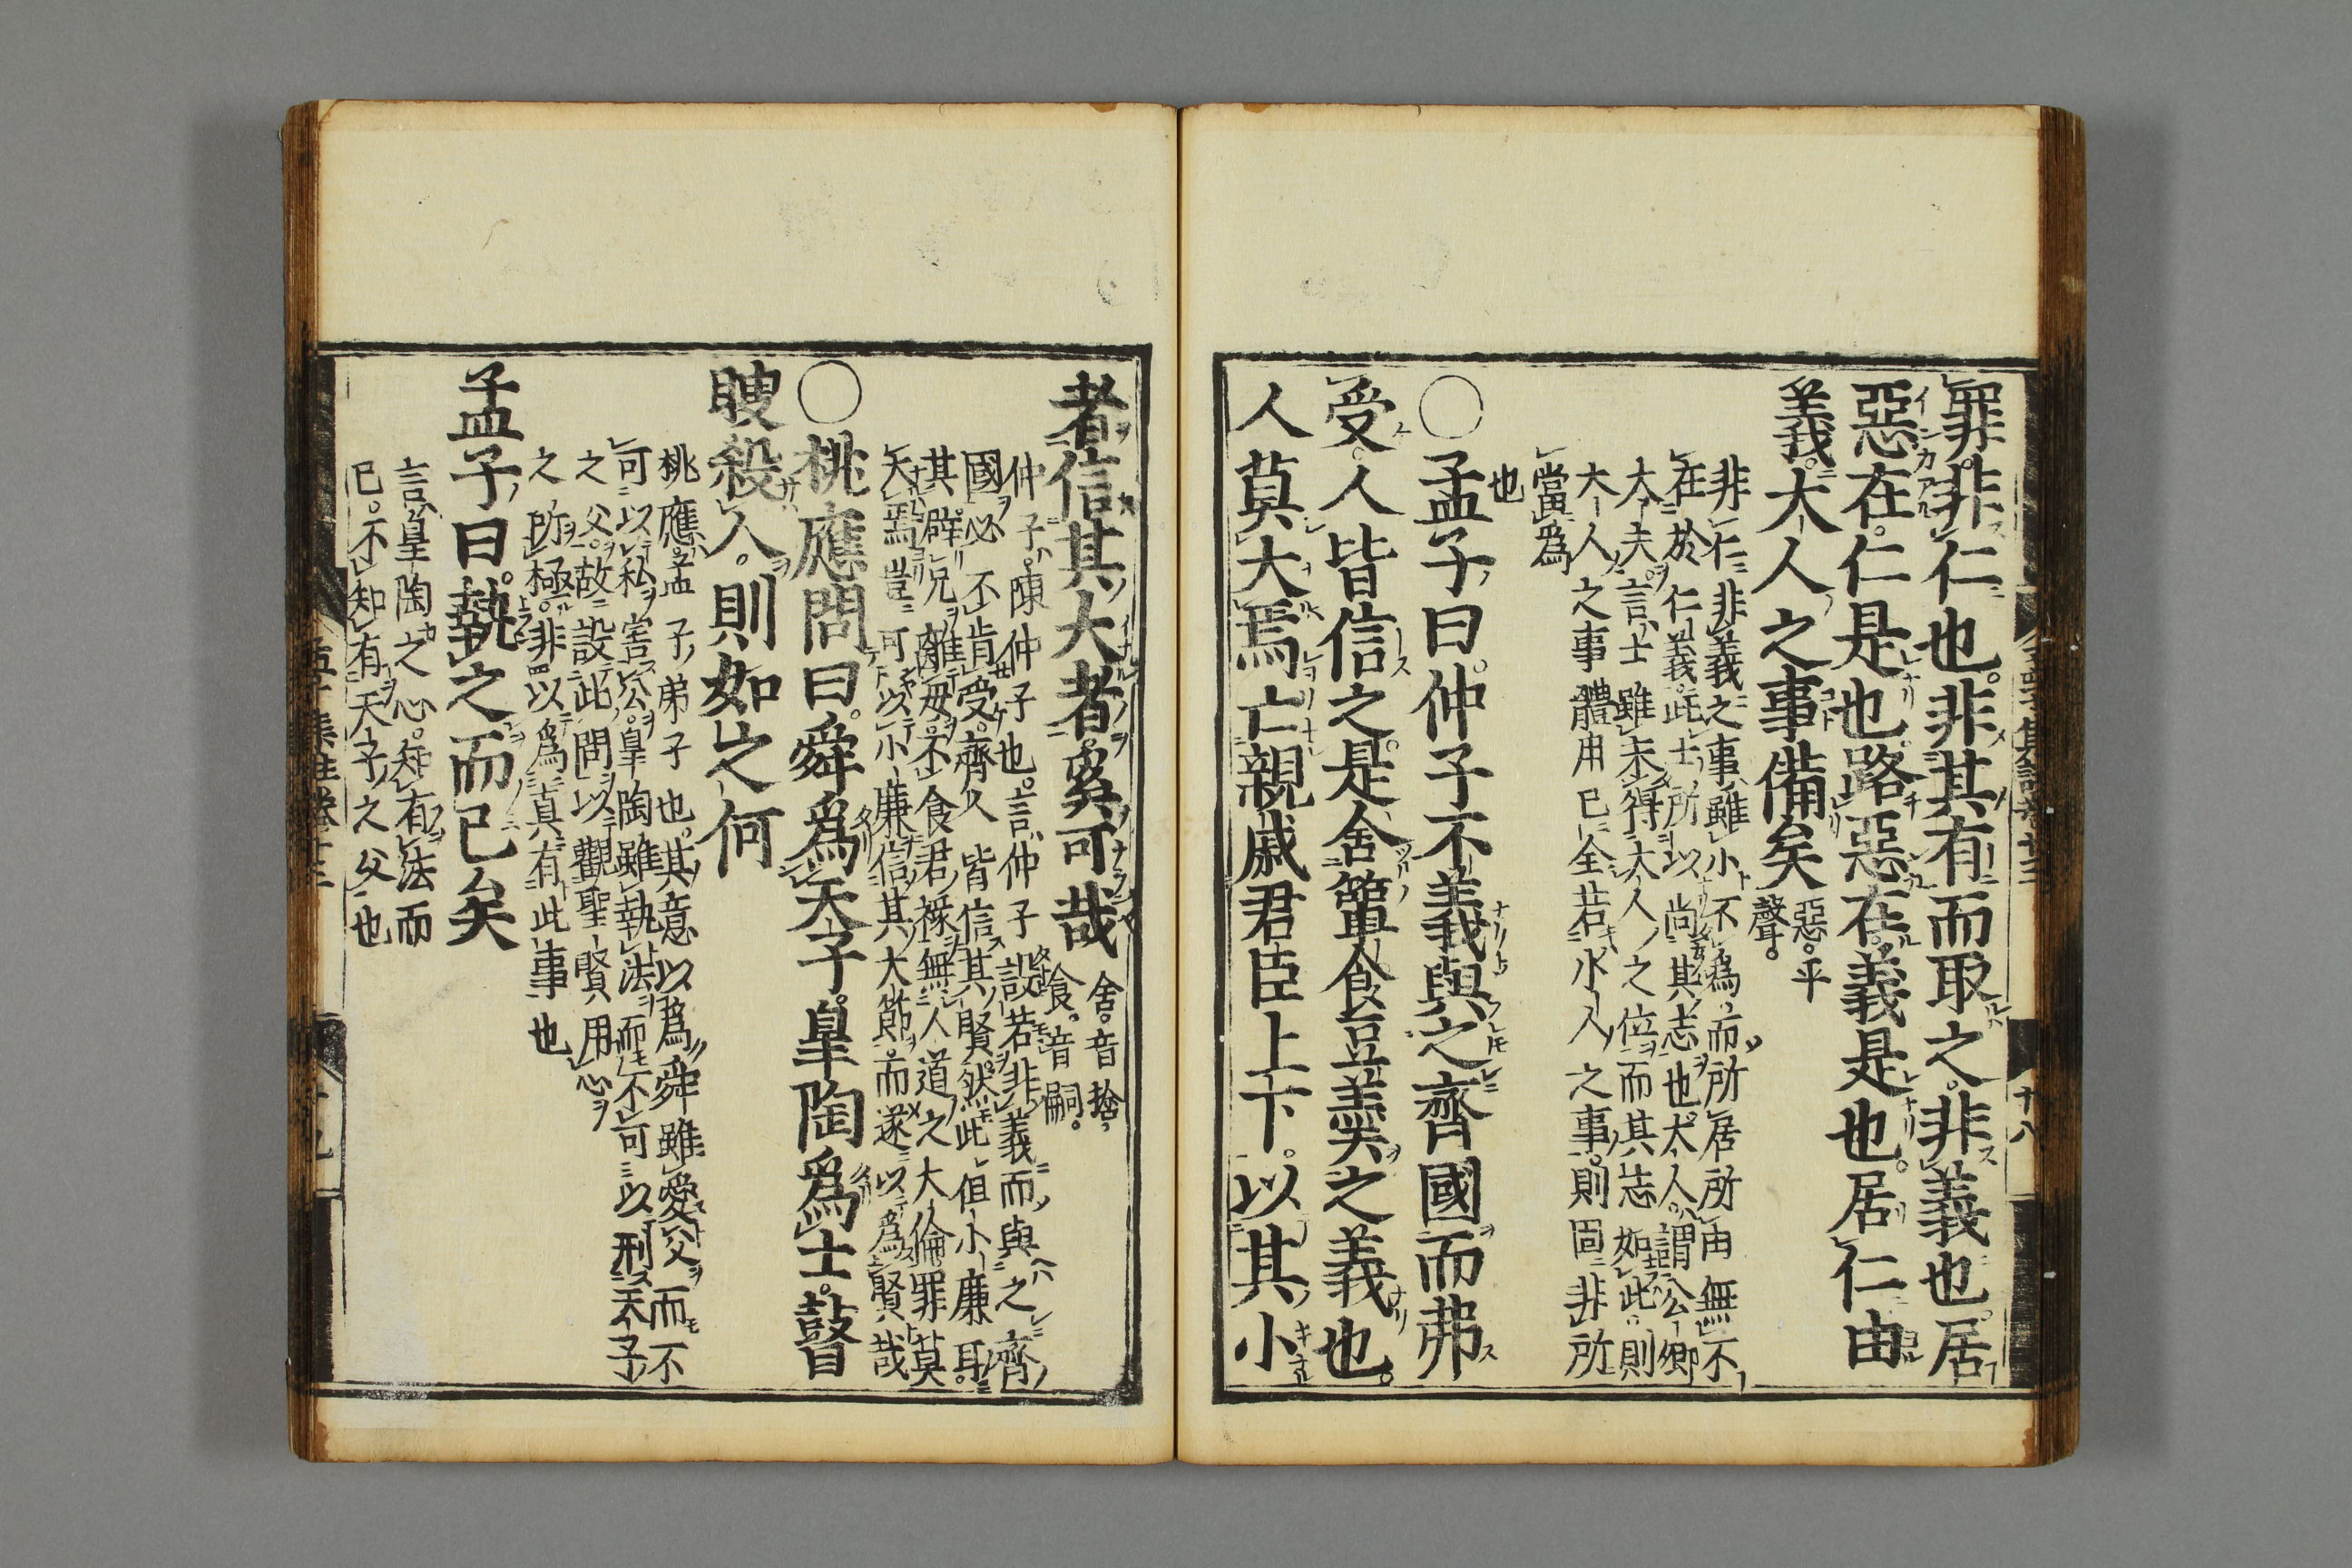 罪非仁也非其有而取之非義也居
惡在仁是也路惡在義是也居仁由
義大人之事備矣
惡平
聲
非仁非義之事雖小不為而所居所由無不
在於仁義此士所以尚其志也大人謂公卿
大夫言士雖未得大人之位而其志如此則
大人之事體用已全若小人之事則固非所
當為
也
○孟子曰仲子不義與之齊國而弗
受人皆信之是舍簞食豆羹之義也
人莫大焉亡親戚君臣上下以其小
十八
者信其大者奚可哉
舍音捨
食音嗣
仲子陳仲子也言仲子設若非義而與之齊
國必不肯受齊人皆信其賢然此但小廉耳
其辟兄離母不食君祿無人道之大倫罪莫
大焉豈可以小廉信其大節而遂以為賢哉
○桃應問曰舜為天子皐陶為士瞽
瞍殺人則如之何
桃應孟子弟子也其意以為舜雖愛父而不
可以私害公皐陶雖執法而不可以刑天子
之父故設此問以觀聖賢用心
之所極非以為真有此事也
孟子曰執之而已矣
言皐陶之心知有法而
已不知有天子之父也